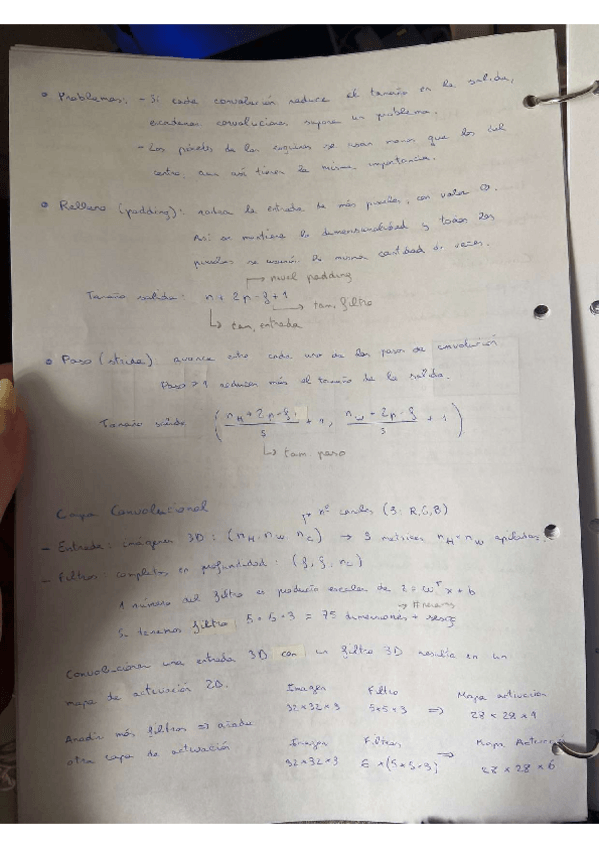 • Problemas: - Si cada convolución reduce el tamaño en la salida,
encadenar convoluciones supone un problema.
- Los píxeles de las esquinas se usan menos que los del
centro, aun así tienen la misma importancia.
• Relleno (padding): rodea la entrada de más píxeles, con valor 0.
Así se mantiene la dimensionalidad y todos los
píxeles se usarán la misma cantidad de veces.
nivel padding
Tamaño salida: n + 2p - f + 1
tam. filtro
tam. entrada
• Paso (stride): avance entre cada uno de los pasos de convolución
Paso > 1 reducen más el tamaño de la salida.
Tamaño salida ( (nH + 2p - f)/s + 1, (nW - 2p - f)/s + 1 )
tam. paso
Capa Convolucional
nº canales (3: R,G,B)
- Entrada: imágenes 3D: (nH × nW × nC) → 3 matrices nH × nW apiladas.
- Filtros: completos en profundidad: (f, f, nC)
1 número del filtro es producto escalar de z = wᵀx + b
Si tenemos filtro 5 × 5 × 3 = 75 dimensiones + sesgo
Convolucionar una entrada 3D con un filtro 3D resulta en un
mapa de activación 2D.
Imagen Filtro Mapa activación
32×32×3 5×5×3 ⇒ 28 × 28 × 1
Anadir más filtros ⇒ añade
otra capa de activación
Imagen Filtros Mapa Activación
32×32×3 6 × (5×5×3) ⇒ 28 × 28 × 6